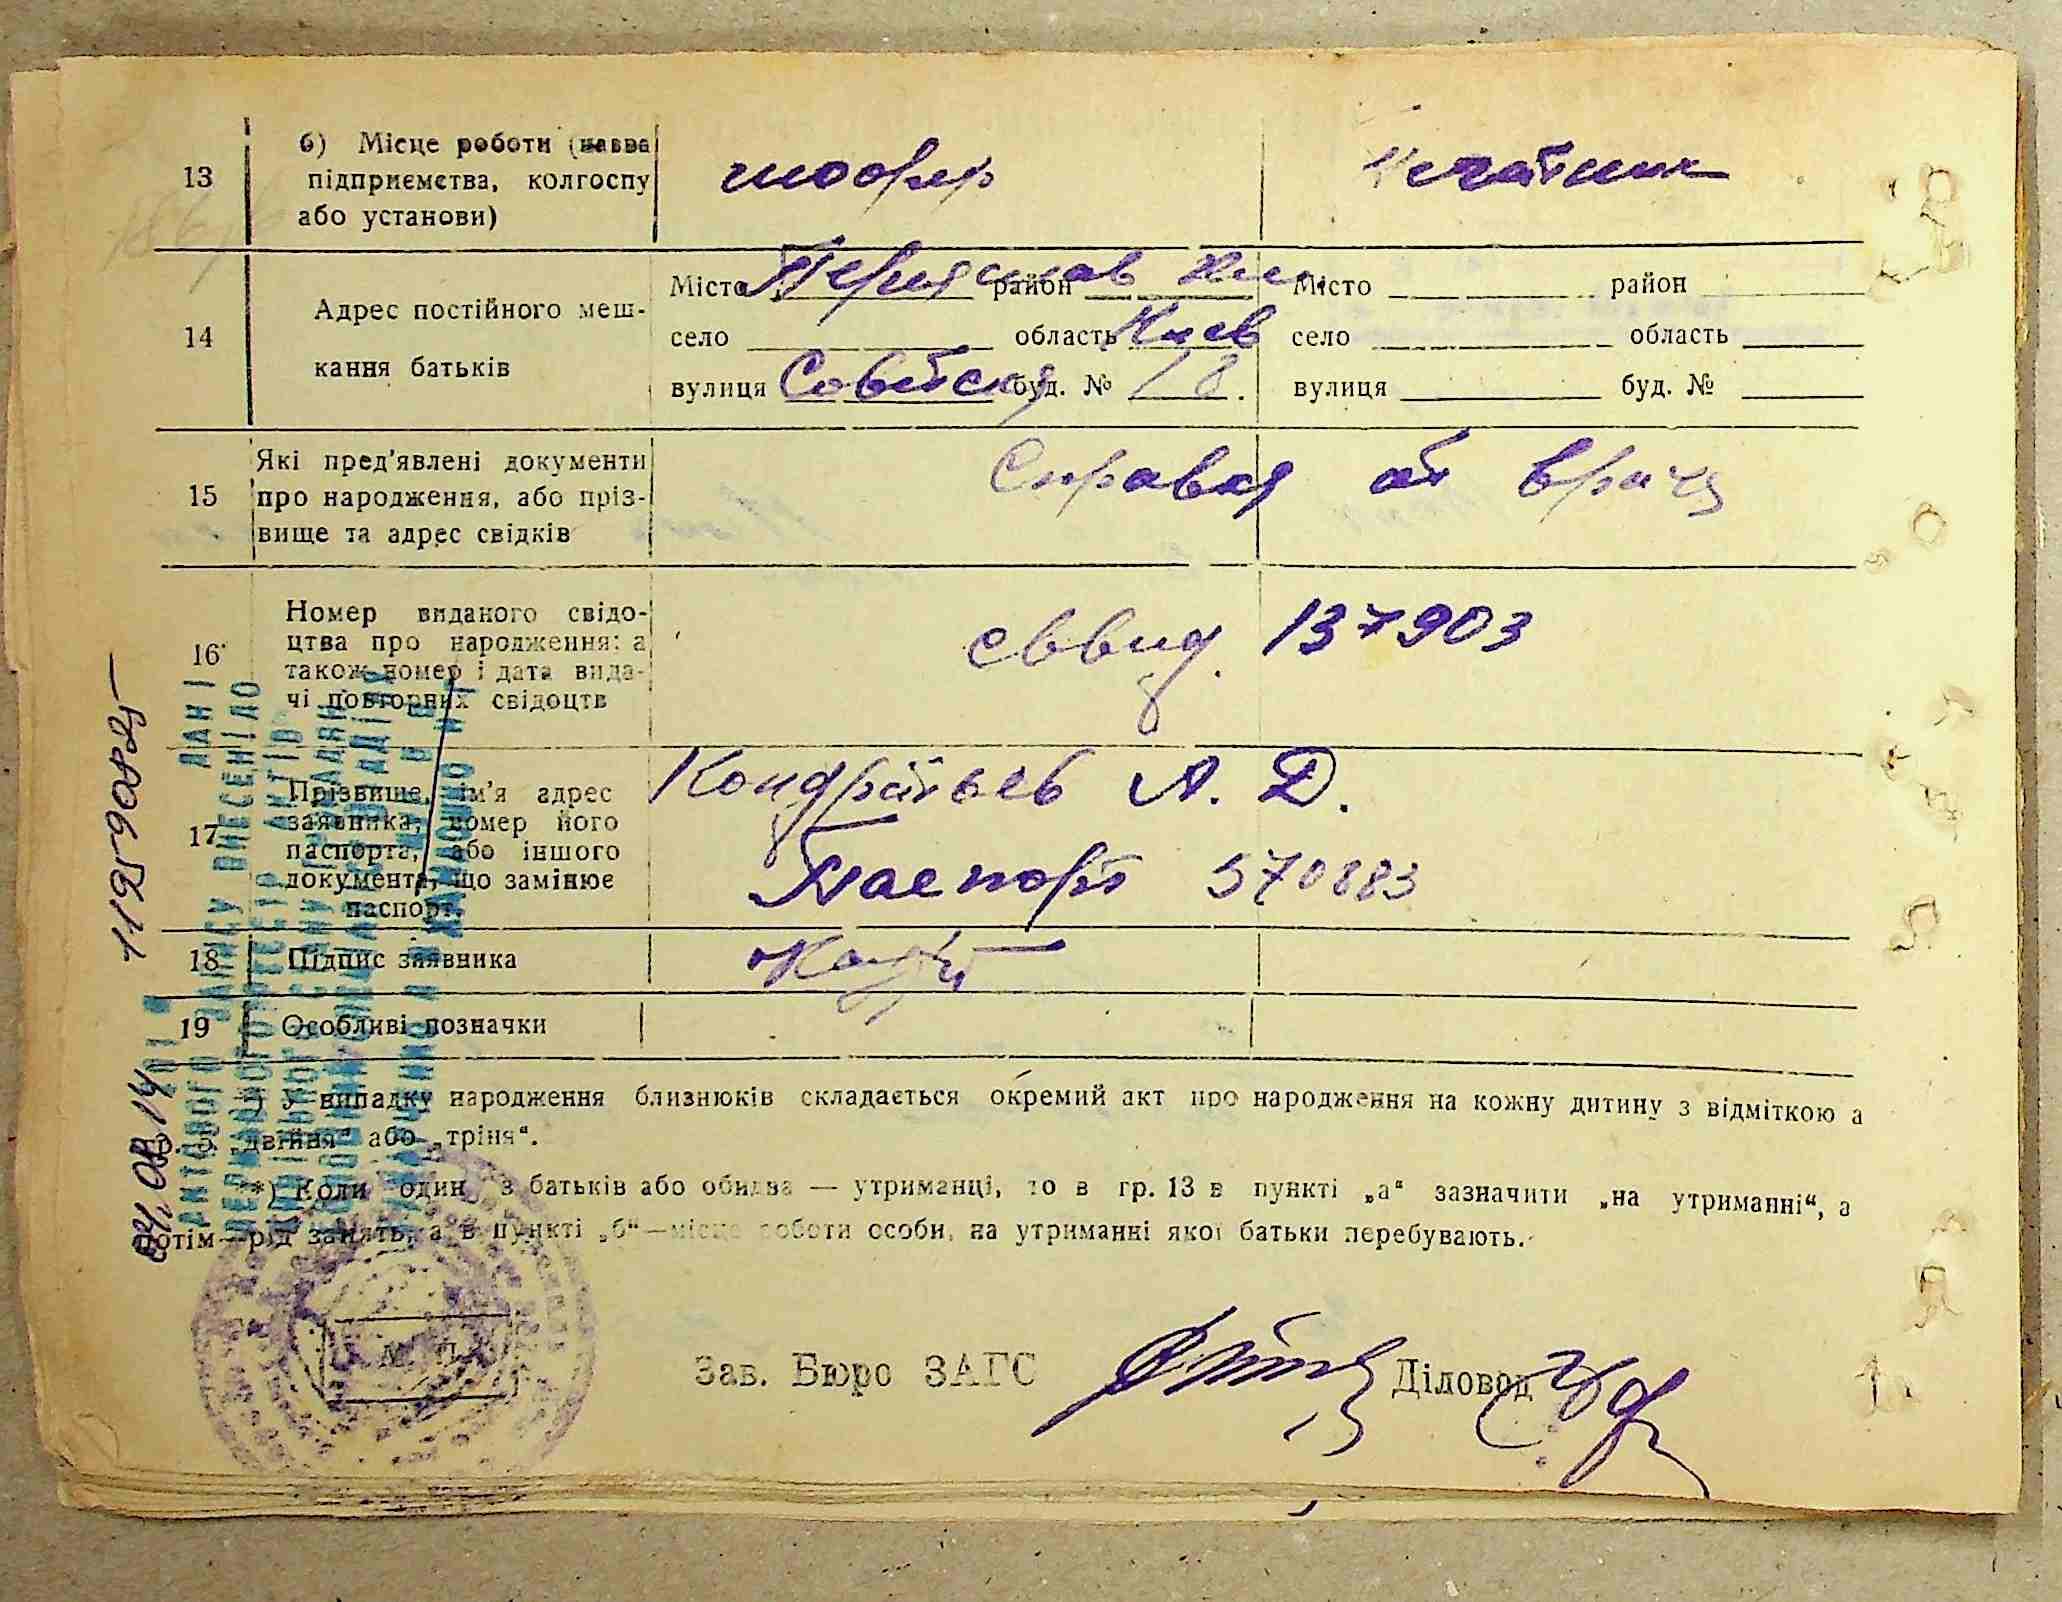 13
б) Місце роботи (назва
підприємства, колгоспу
або установи)
шофер
14
Адрес постійного меш-
кання батьків
Місто Переяслав Хм. район
село область Киев
вулиця Советская буд. № 18.
Місто район
село область
вулиця буд. №
15
Які пред'явлені документи
про народження, або пріз-
вище та адрес свідків
Справка от врача
16
Номер виданого свідо-
цтва про народження: а
також номер і дата вида-
чі повторних свідоцтв
сввид. 137903
17
Прізвище, ім'я адрес
заявника, номер його
паспорта, або іншого
документа, що замінює
паспорт.
Кондратьев А. Д.
Паспорт 570883
18
Підпис заявника
19
Особливі позначки
*) У випадку народження близнюків складається окремий акт про народження на кожну дитину з відміткою а
„двійня“ або „тріня“.
**) Коли один з батьків або обидва — утриманці, то в гр. 13 в пункті „а“ зазначити „на утриманні“, а
потім—рід занять, а в пункті „б“—місце роботи особи, на утриманні якої батьки перебувають.
М. П.
Зав. Бюро ЗАГС
Діловод
ДАНІ
АКТОВОГО ЗАПИСУ ВНЕСЕНІ ДО
ДЕРЖАВНОГО РЕЄСТРУ АКТІВ
ЦИВІЛЬНОГО СТАНУ ГРОМАДЯН